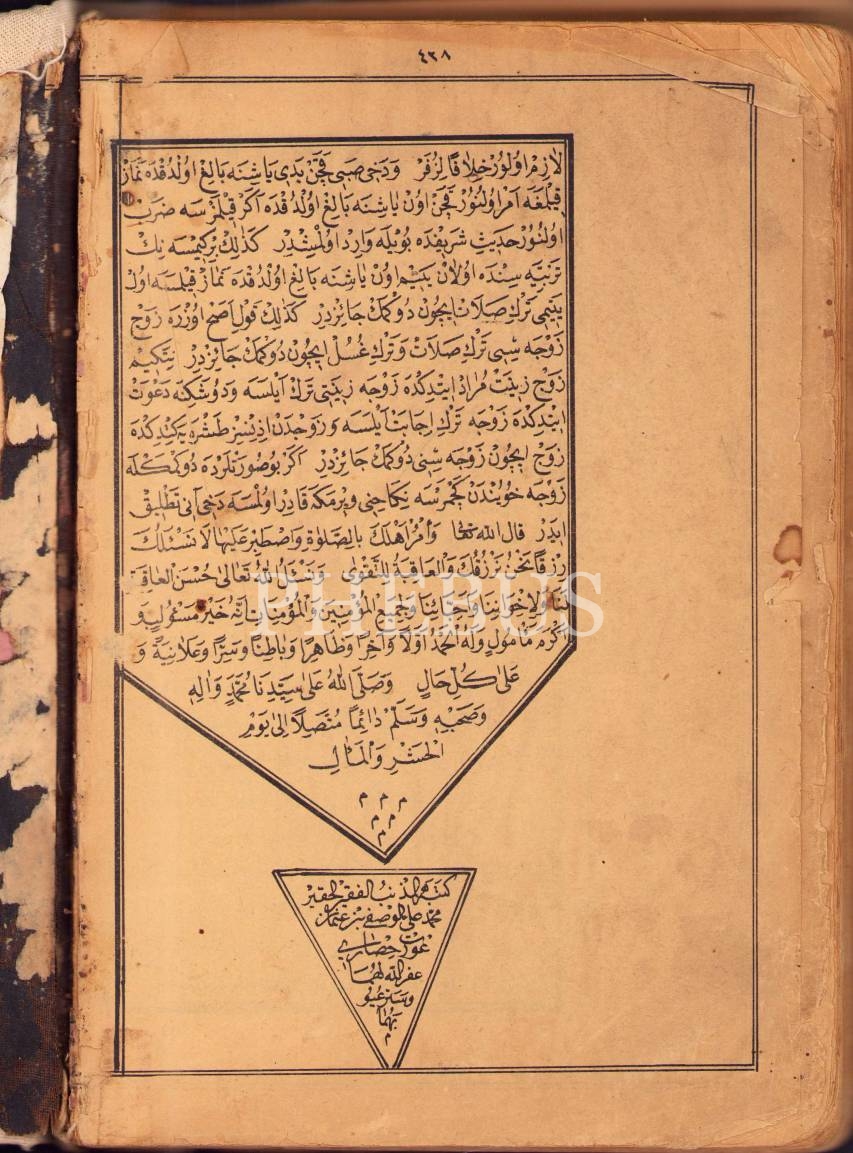 ٤٣٨
لازم اولور خلافا لزفر ودخى صبى قچن يدى ياشنه بالغ اولدقده نماز
قيلمغه امر اولنور قچن اون ياشنه بالغ اولدقده اكر قيلمز سه ضرب
اولنور حديث شريفده بويله وارد اولمشدر كذلك بر كيمسه نك
تربيه سنده اولان يتيم اون ياشنه بالغ اولدقده نماز قيلمسه اول
يتيمى ترك صلات ايچون دوكمك جائزدر كذلك قول اصح اوزره زوج
زوجه سنى ترك صلات وترك غسل ايچون دوكمك جائزدر نتكيم
زوج زينت مراد ايتدكده زوجه زينتى ترك ايلسه ودوشكنه دعوت
ايتدكده زوجه ترك اجابت ايلسه وزوجدن اذنسز طشره يه كتدكده
زوج ايچون زوجه سنى دوكمك جائزدر اكر بو صورتلرده دوكمكله
زوجه خويندن كچمرسه نكاحنى ويرمكه قادر اولمسه دخى آنى تطليق
ايدر قال الله تعالى وأمر اهلك بالصلوة واصطبر عليها لا نسئلك
رزقا نحن نرزقك والعاقبة للتقوى ونسئل الله تعالى حسن العاقبة
لنا ولاخواننا واحبائنا ولجميع المؤمنين والمؤمنات انه خير مسئول و
اكرم مأمول وله الحمد اولا وآخرا وظاهرا وباطنا وسرا وعلانية و
على كل حال وصلى الله على سيدنا محمد واله
وصحبه وسلم دائما متصلا الى يوم
الحشر والمأل
م م م
م م
م
كتبه المذنب الفقير الحقير
محمد على الوصفى بن عثمان
عورت حصارى
غفر الله لهما
وستر عيو
بهما
م
PHEBUS